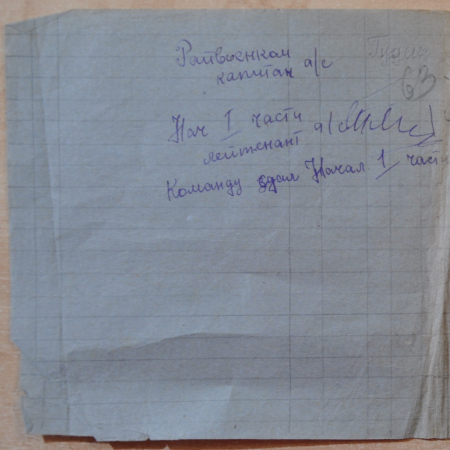 Райвоенком
капитан а/с
63
Нач I части а/с
лейтенант
Команду сдал Начал 1 части